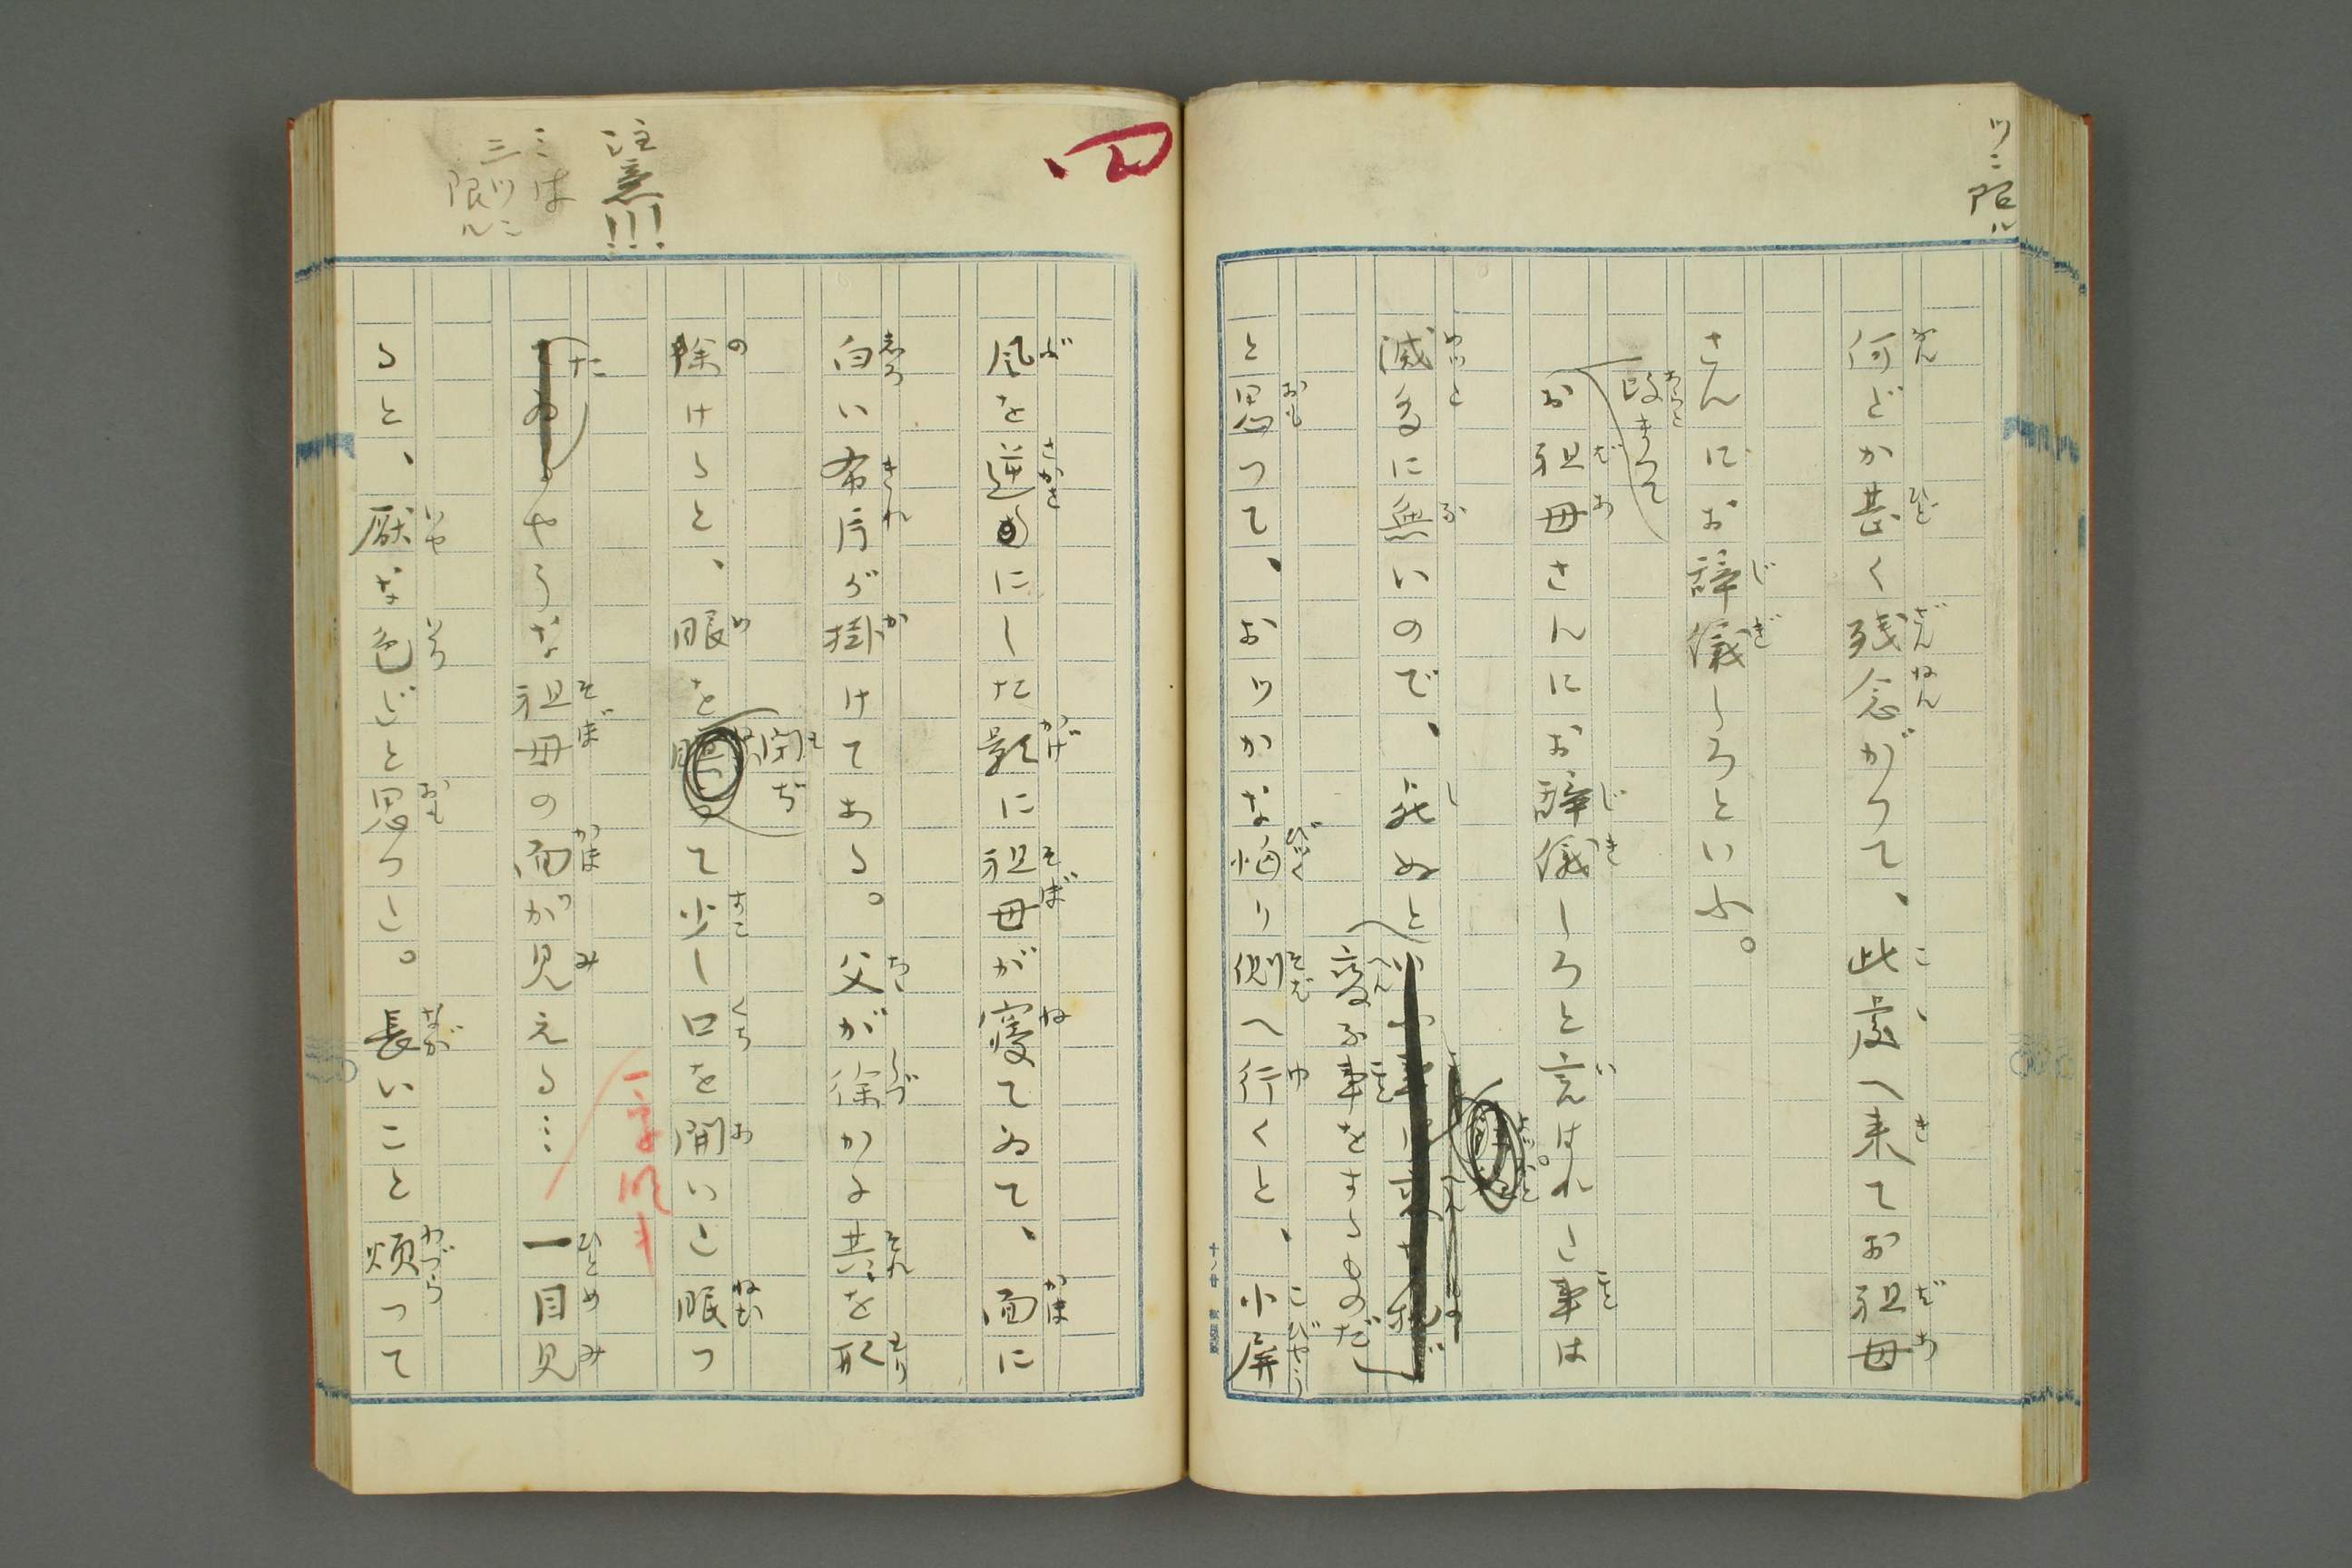 ツニ限ル
何どか甚く残念がつて、此處へ来てお祖母
さんにお辞儀しろといふ。
改まつて
お祖母さんにお辞儀しろと言はれた事は
滅多に無いので、死ぬと
変な事をするものだ
と思つて、おツかな悩り側へ行くと、小屏
四、
風を逆にした影に祖母が寝てゐて、面に
白い布片が掛けてある。父が徐かに其を取
除けると、眼を閉ぢて少し口を開いた眠つ
たやうな祖母の面が見える…一目見
ると、厭な色だと思つた。長いこと煩つて
注意!!!
ミは
三ツニ
限ル